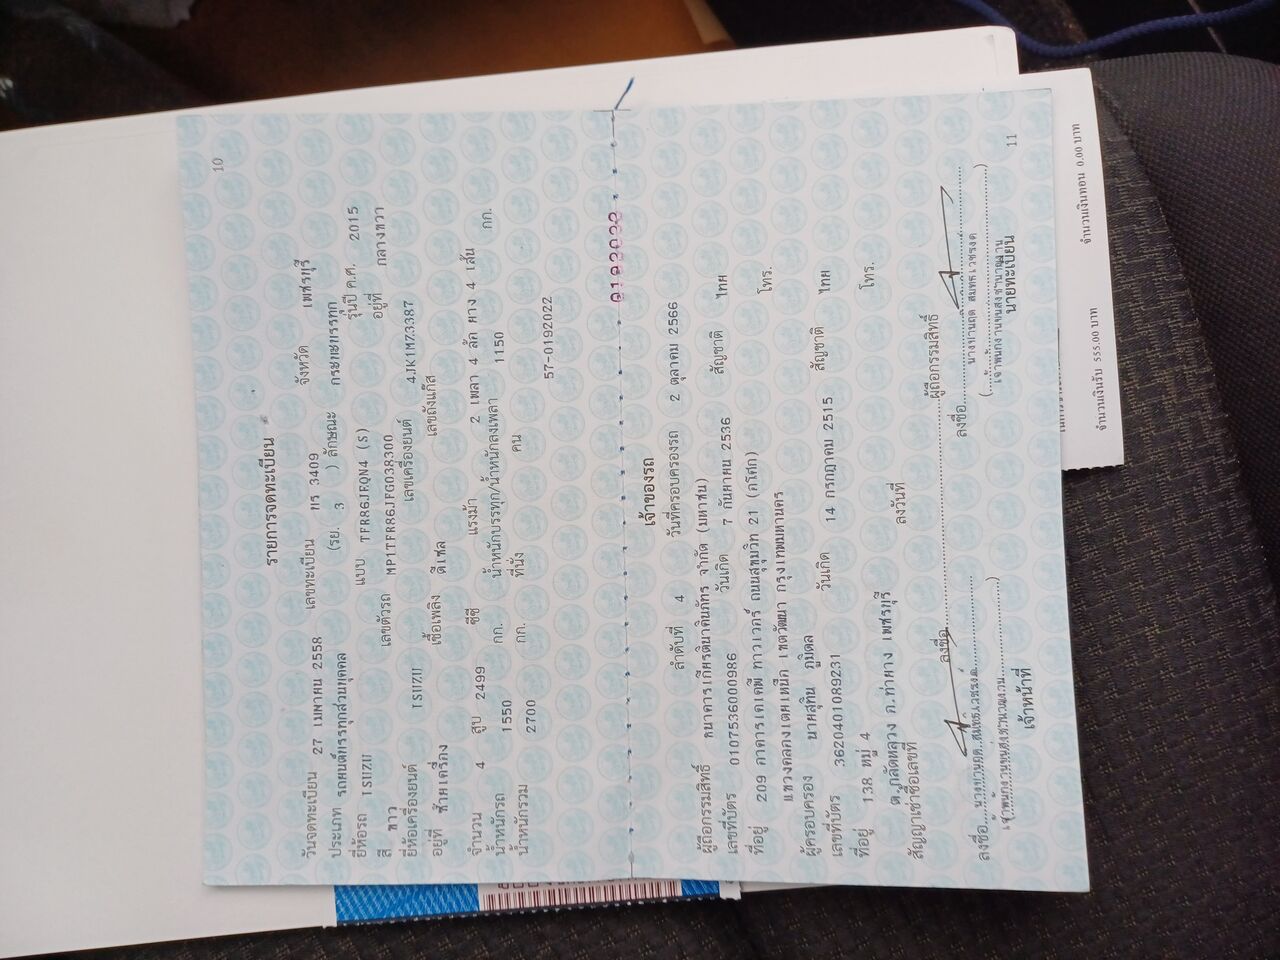 10
รายการจดทะเบียน
วันจดทะเบียน 27 เมษายน 2558 เลขทะเบียน 3409 จังหวัด เพชรบุรี
ประเภท รถยนต์บรรทุกส่วนบุคคล (รย. 3 ) ลักษณะ กระบะบรรทุก
ยี่ห้อรถ ISUZU แบบ TFR86JEQN4 (S) รุ่นปี ค.ศ. 2015
สี ขาว เลขตัวรถ MP1TFR86JFG038300 อยู่ที่ กลางขวา
ยี่ห้อเครื่องยนต์ ISUZU เลขเครื่องยนต์ 4JK1MZ3387
อยู่ที่ ซ้ายเครื่อง เชื้อเพลิง ดีเซล เลขถังแก๊ส
จำนวน 4 สูบ 2499 ซีซี แรงม้า 2 เพลา 4 ล้อ ยาง 4 เส้น
น้ำหนักรถ 1550 กก. น้ำหนักบรรทุก/น้ำหนักลงเพลา 1150 กก.
น้ำหนักรวม 2700 กก. ที่นั่ง คน
57-0192022
เจ้าของรถ
ลำดับที่ 4 วันที่ครอบครองรถ 2 ตุลาคม 2566
ผู้ถือกรรมสิทธิ์ ธนาคารเกียรตินาคินภัทร จำกัด (มหาชน)
เลขที่บัตร 0107536000986 วันเกิด 7 กันยายน 2536 สัญชาติ ไทย
ที่อยู่ 209 อาคารเคเคพี ทาวเวอร์ ถนนสุขุมวิท 21 (อโศก) โทร.
แขวงคลองเตยเหนือ เขตวัฒนา กรุงเทพมหานคร
ผู้ครอบครอง นายสุทิน ภูมิดล
เลขที่บัตร 3620401089231 วันเกิด 14 กรกฎาคม 2515 สัญชาติ ไทย
ที่อยู่ 138 หมู่ 4 โทร.
ต.กลัดหลวง อ.ท่ายาง เพชรบุรี
สัญญาเช่าซื้อเลขที่ ลงวันที่
ลงชื่อ ผู้ถือกรรมสิทธิ์
ลงชื่อ
ลงชื่อ
เจ้าหน้าที่
นายทะเบียน
11
จำนวนเงินรับ 555.00 บาท จำนวนเงินทอน 0.00 บาท